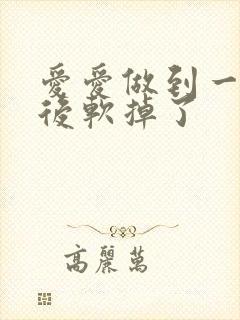 愛愛做到一
後軟掉了
高麗萬